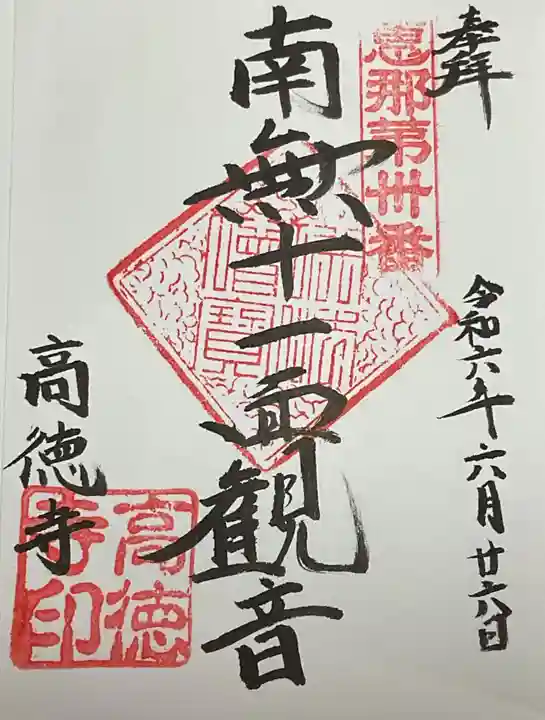 奉拝
恵那苐卅番
令和六年六月廿六日
南無十一面観音
佛法
僧寶
高徳寺
高徳
寺印